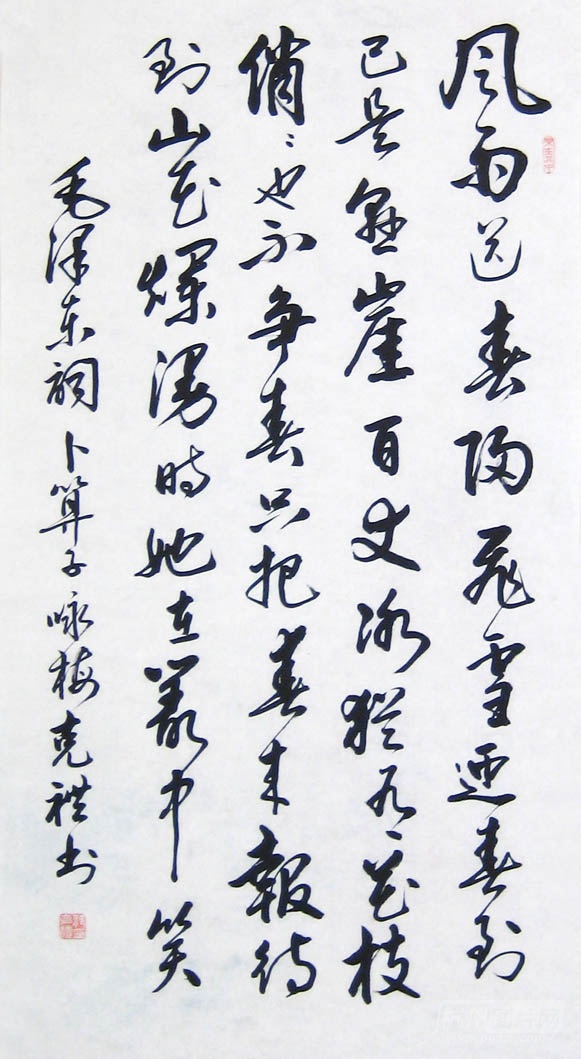 风雨送春归飞雪迎春到
已是悬崖百丈冰犹有花枝
俏〻也不争春只把春来報待
到山花爛漫時她在叢中笑
毛泽东词卜算子咏梅克禮书